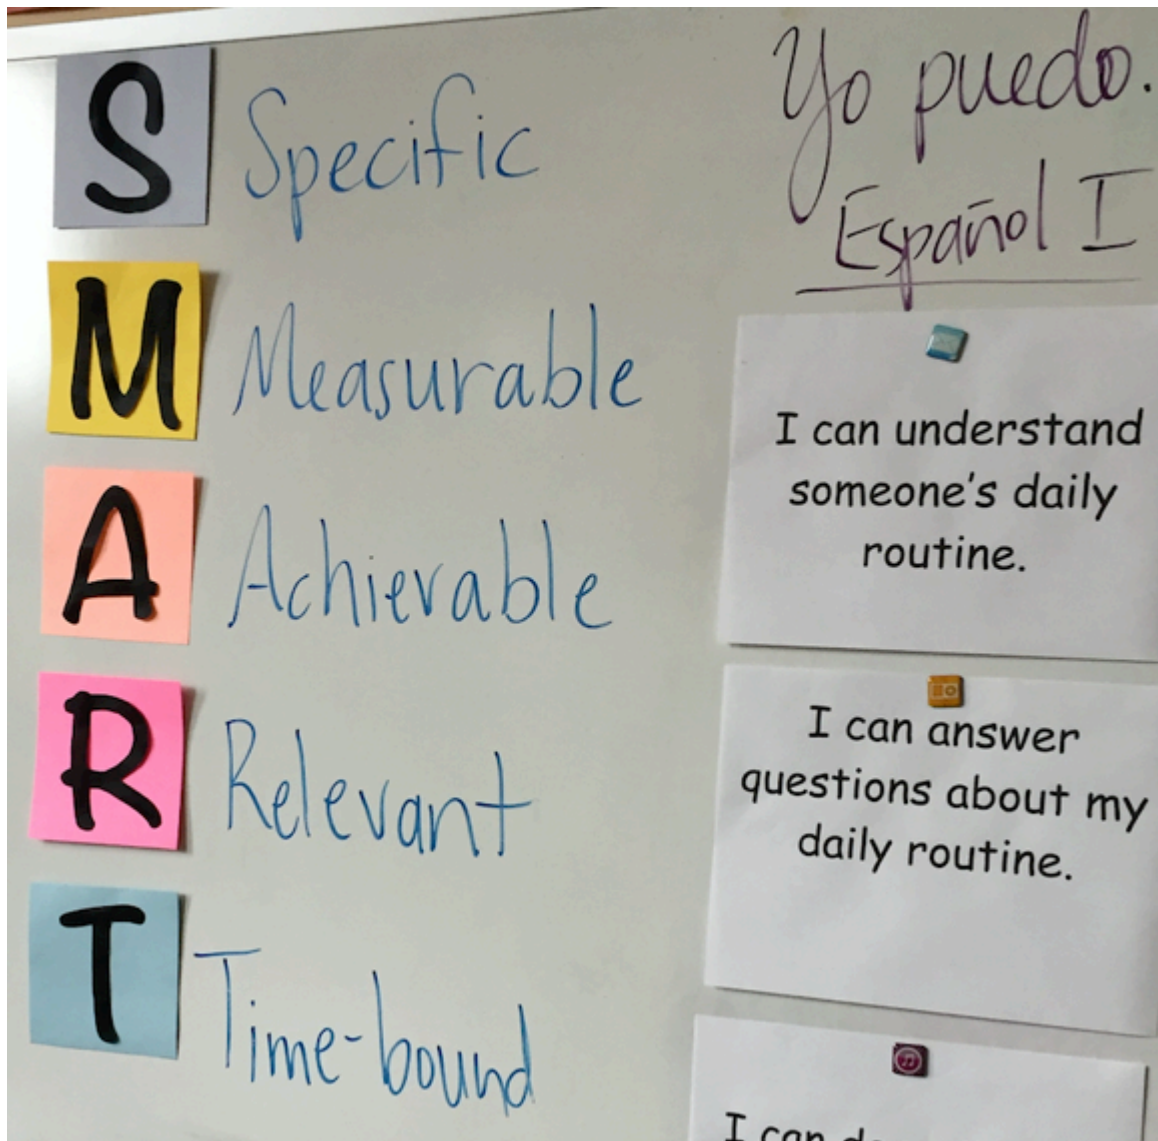 S Specific
M Measurable
A Achievable
R Relevant
T Time-bound
Yo puedo.
Español I
I can understand
someone's daily
routine.
I can answer
questions about my
daily routine.
I can